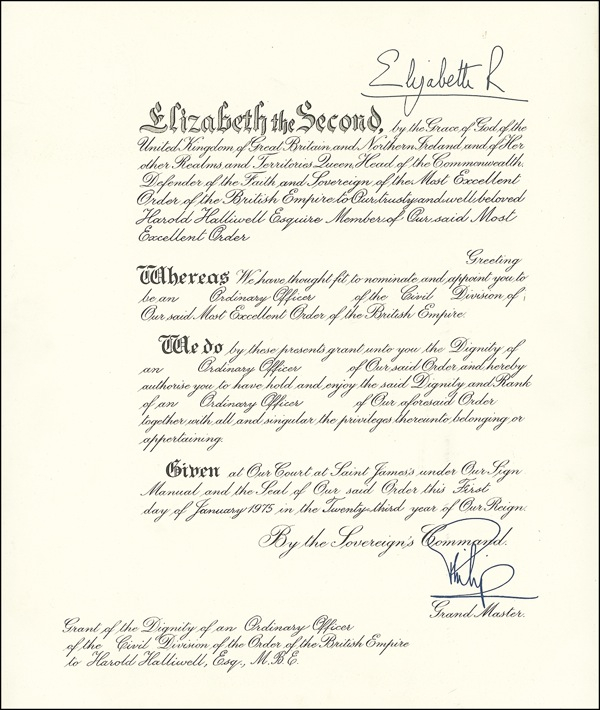 Elizabeth R
Elizabeth the Second, by the Grace of God, of the
United Kingdom of Great Britain and Northern Ireland and of Her
other Realms and Territories Queen, Head of the Commonwealth,
Defender of the Faith and Sovereign of the Most Excellent
Order of the British Empire to Our trusty and well beloved
Harold Halliwell Esquire Member of Our said Most
Excellent Order
Greeting
Whereas We have thought fit to nominate and appoint you to
be an Ordinary Officer of the Civil Division of
Our said Most Excellent Order of the British Empire.
We do by these presents grant unto you the Dignity of
an Ordinary Officer of Our said Order and hereby
authorise you to have hold and enjoy the said Dignity and Rank
of an Ordinary Officer of Our aforesaid Order
together with all and singular the privileges thereunto belonging or
appertaining.
Given at Our Court at Saint James's under Our Sign
Manual and the Seal of Our said Order this First
day of January 1975 in the Twenty-third year of Our Reign.
By the Sovereign's Command.
Philip
Grand Master.
Grant of the Dignity of an Ordinary Officer
of the Civil Division of the Order of the British Empire
to Harold Halliwell, Esq., M.B.E.